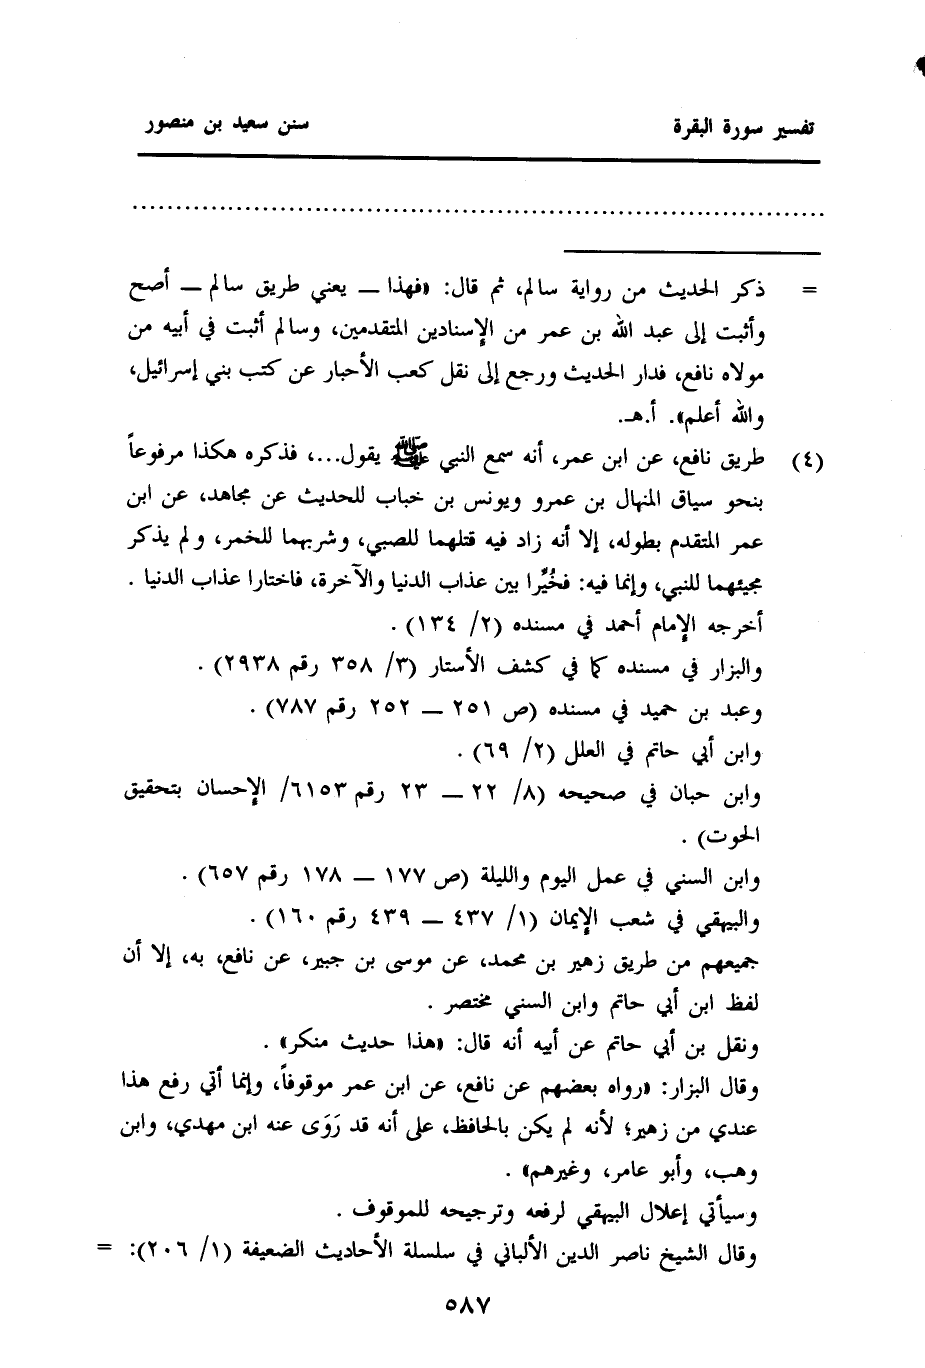 تفسير سورة البقرة سنن سعيد بن منصور
= ذكر الحديث من رواية سالم، ثم قال: «فهذا ــ يعني طريق سالم ــ أصح
وأثبت إلى عبد الله بن عمر من الإسنادين المتقدمين، وسالم أثبت في أبيه من
مولاه نافع، فدار الحديث ورجع إلى نقل كعب الأحبار عن كتب بني إسرائيل،
والله أعلم». أ.هـ.
(٤) طريق نافع، عن ابن عمر، أنه سمع النبي ﷺ يقول...، فذكره هكذا مرفوعاً
بنحو سياق المنهال بن عمرو ويونس بن خباب للحديث عن مجاهد، عن ابن
عمر المتقدم بطوله، إلا أنه زاد فيه قتلهما للصبي، وشربهما للخمر، ولم يذكر
مجيئهما للنبي، وإنما فيه: فخُيِّرا بين عذاب الدنيا والآخرة، فاختارا عذاب الدنيا .
أخرجه الإمام أحمد في مسنده (٢/ ١٣٤) .
والبزار في مسنده كما في كشف الأستار (٣/ ٣٥٨ رقم ٢٩٣٨) .
وعبد بن حميد في مسنده (ص ٢٥١ ــ ٢٥٢ رقم ٧٨٧) .
وابن أبي حاتم في العلل (٢/ ٦٩) .
وابن حبان في صحيحه (٨/ ٢٢ ــ ٢٣ رقم ٦١٥٣/ الإحسان بتحقيق
الحوت) .
وابن السني في عمل اليوم والليلة (ص ١٧٧ ــ ١٧٨ رقم ٦٥٧) .
والبيهقي في شعب الإيمان (١/ ٤٣٧ ــ ٤٣٩ رقم ١٦٠) .
جميعهم من طريق زهير بن محمد، عن موسى بن جبير، عن نافع، به، إلا أن
لفظ ابن أبي حاتم وابن السني مختصر .
ونقل بن أبي حاتم عن أبيه أنه قال: «هذا حديث منكر» .
وقال البزار: «رواه بعضهم عن نافع، عن ابن عمر موقوفاً، وإنما أتي رفع هذا
عندي من زهير؛ لأنه لم يكن بالحافظ، على أنه قد رَوَى عنه ابن مهدي، وابن
وهب، وأبو عامر، وغيرهم» .
وسيأتي إعلال البيهقي لرفعه وترجيحه للموقوف .
وقال الشيخ ناصر الدين الألباني في سلسلة الأحاديث الضعيفة (١/ ٢٠٦): =
٥٨٧